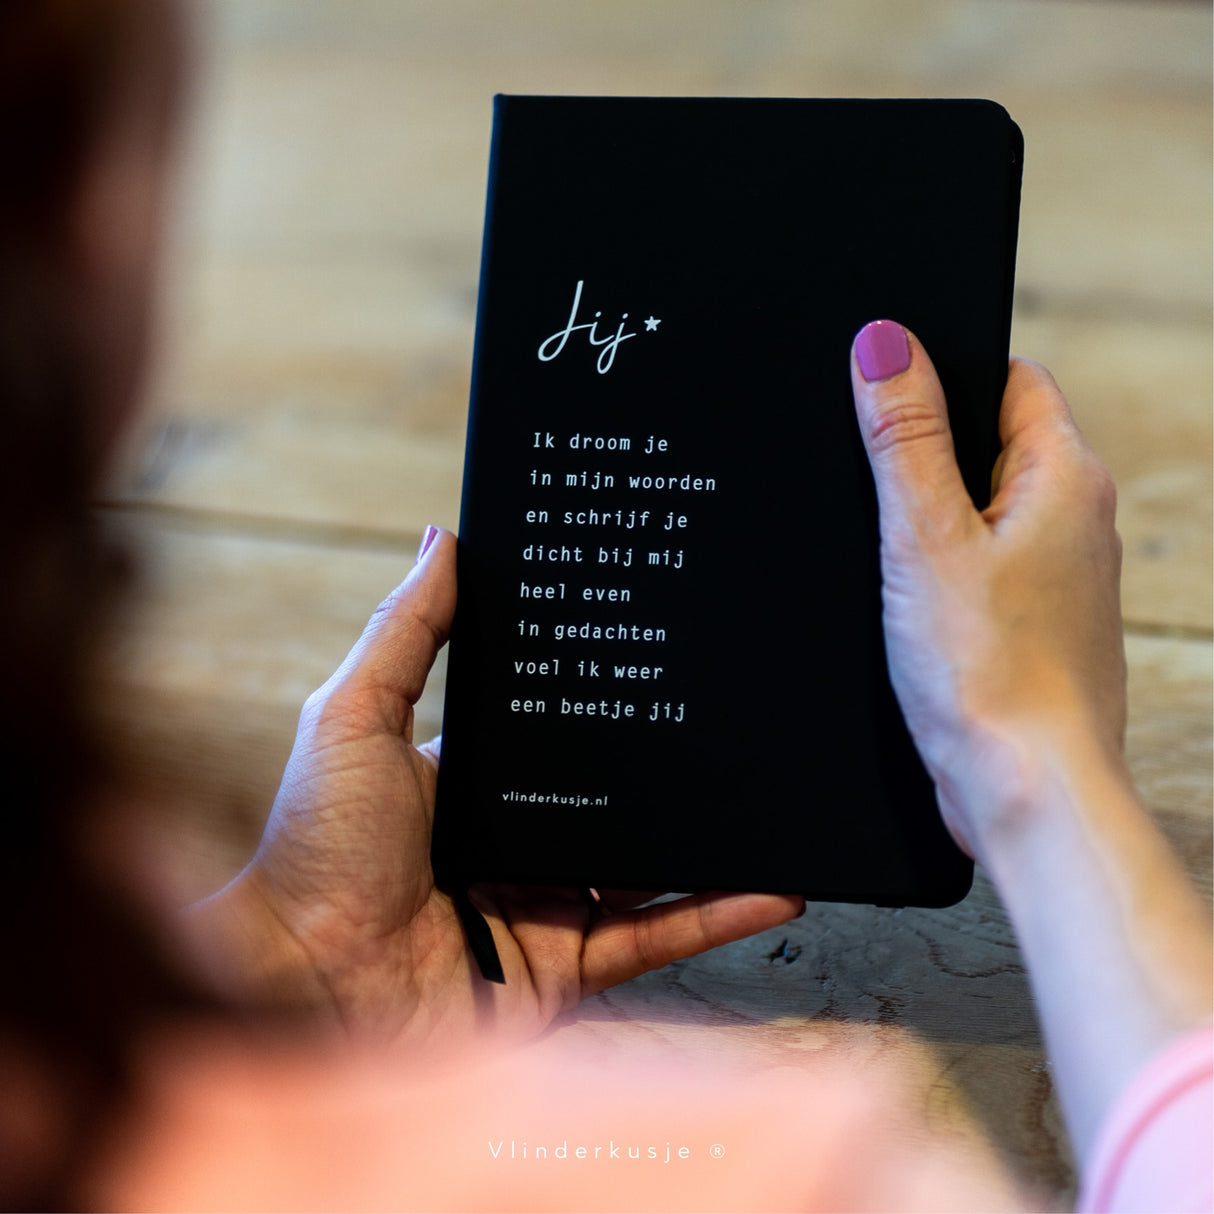 Jij
Ik droom je
in mijn woorden
en schrijf je
dicht bij mij
heel even
in gedachten
voel ik weer
een beetje jij
vlinderkusje.nl
Vlinderkusje ®